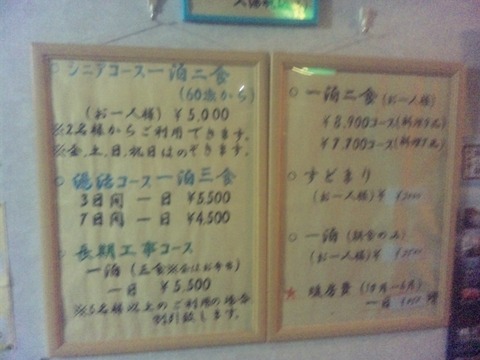 ○シニアコース一泊二食
(60歳から)
(お一人様) ¥5,000
※2名様からご利用できます。
※金、土、日、祝日はのぞきます。
○湯治コース一泊三食
3日間 一日 ¥5,500
7日間 一日 ¥4,500
○長期工事コース
一泊(三食※昼はお弁当)
一日 ¥5,500
※5名様以上のご利用の場合
割引致します。
○一泊二食(お一人様)
¥8,900コース(料理9品)
¥7,700コース(料理7品)
○すどまり
(お一人様) ¥
○一泊(朝食のみ)
(お一人様) ¥
★暖房費(10月〜6月)
一日 ¥